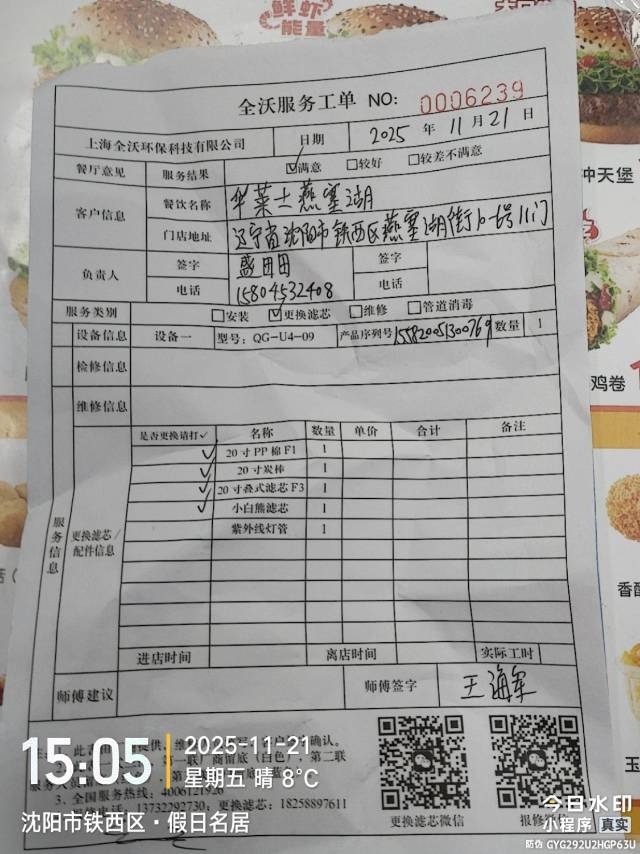 鲜虾
能量
全沃服务工单 NO: 0006239
上海全沃环保科技有限公司 日期 2025 年 11 月 21 日
餐厅意见 服务结果 ☑满意 □较好 □较差不满意
客户信息 餐饮名称 华莱士燕塞湖
门店地址 辽宁省沈阳市铁西区燕塞湖街10-6号11门
负责人 签字 盛田田 签字
电话 15804532408 电话
服务类别 □安装 ☑更换滤芯 □维修 □管道消毒
设备信息 设备一 型号: QG-U4-09 产品序列号 155820051300769 数量 1
检修信息
维修信息
服务信息
更换滤芯/
配件信息
是否更换请打✓ 名称 数量 单价 合计 备注
✓ 20寸PP棉F1 1
✓ 20寸炭棒 1
✓ 20寸叠式滤芯F3 1
✓ 小白熊滤芯 1
紫外线灯管 1
进店时间 离店时间 实际工时
师傅建议 师傅签字 王海军
3. 全国服务热线: 4006121920
13732292730; 更换滤芯: 18258897611
更换滤芯微信
15:05
2025-11-21
星期五 晴 8°C
沈阳市铁西区·假日名居
今日水印
小程序 真实
防伪 GYG292U2HGP63U
冲天堡
鸡卷
香酥
玉